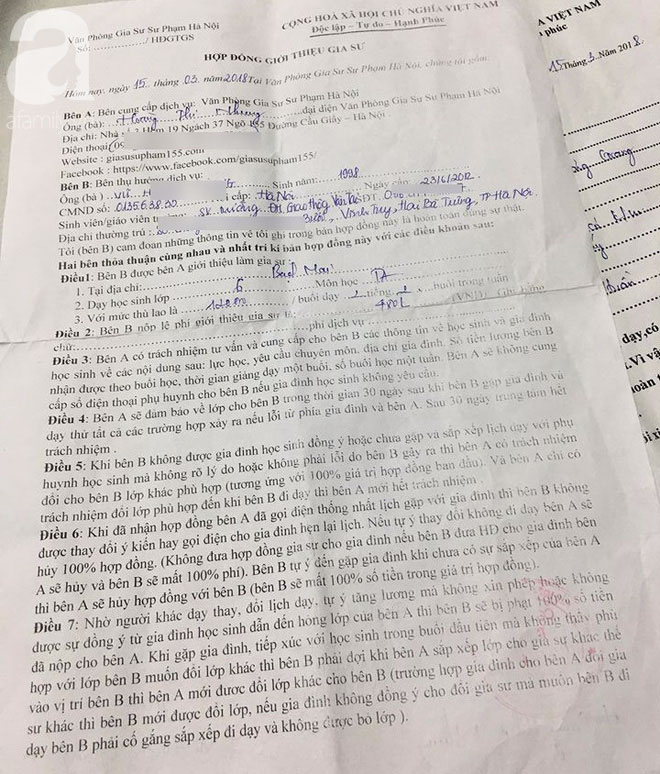 Văn Phòng Gia Sư Sư Phạm Hà Nội
Số: ............/ HĐGTGS
CỘNG HOÀ XÃ HỘI CHỦ NGHĨA VIỆT NAM
Độc lập – Tự do – Hạnh Phúc
HỢP ĐỒNG GIỚI THIỆU GIA SƯ
Hôm nay, ngày 15 tháng 03 năm 2018 Tại Văn Phòng Gia Sư Sư Phạm Hà Nội, chúng tôi gồm:
Bên A: Bên cung cấp dịch vụ: Văn Phòng Gia Sư Sư Phạm Hà Nội
Ông (bà): Hoàng Thị Nhung đại diện Văn Phòng Gia Sư Sư Phạm Hà Nội
Địa chỉ: Nhà Hẻm 19 Ngách 37 Ngõ 165 Đường Cầu Giấy – Hà Nội
Điện thoại 09
Website : giasusupham155.com
Facebook : https://www.facebook.com/giasusupham155/
Bên B: Bên thụ hưởng dịch vụ:
Ông (bà ) Vũ H Sinh năm: 1998
CMND số: 013563820 cấp: Hà Nội Ngày cấp 23/6/2012
Sinh viên/giáo viên SV trường ĐH Giao thông Vận tải ĐT.
Địa chỉ thường trú : Vĩnh Tuy, Hai Bà Trưng, TP Hà Nội
Tôi (bên B) cam đoan những thông tin về tôi ghi trong bản hợp đồng này là hoàn toàn đúng sự thật.
Hai bên thỏa thuận cùng nhau và nhất trí kí bản hợp đồng này với các điều khoản sau:
Điều1: Bên B được bên A giới thiệu làm gia sư
1. Tại địa chỉ: Bạch Mai
2. Dạy học sinh lớp 6 Môn học TA
3. Với mức thù lao là / buổi dạy 2 tiếng, 2 buổi trong tuần
Điều 2: Bên B nộp lệ phí giới thiệu gia sư là 480k (VNĐ)
chữ: phí dịch vụ
Điều 3: Bên A có trách nhiệm tư vấn và cung cấp cho bên B các thông tin về học sinh và gia đình
học sinh về các nội dung sau: lực học, yêu cầu chuyên môn, địa chỉ gia đình. Số tiền lương bên B
nhận được theo buổi học, thời gian giảng dạy một buổi, số buổi học một tuần. Bên A sẽ không cung
cấp số điện thoại phụ huynh cho bên B nếu gia đình học sinh không yêu cầu.
Điều 4: Bên A sẽ đảm bảo về lớp cho bên B trong thời gian 30 ngày sau khi bên B gặp gia đình và
dạy thử tất cả các trường hợp xảy ra nếu lỗi từ phía gia đình và bên A. Sau 30 ngày trung tâm hết
trách nhiệm .
Điều 5: Khi bên B không được gia đình học sinh đồng ý hoặc chưa gặp và sắp xếp lịch dạy với phụ
huynh học sinh mà không rõ lý do hoặc không phải lỗi do bên B gây ra thì bên A có trách nhiệm
đổi cho bên B lớp khác phù hợp (tương ứng với 100% giá trị hợp đồng ban đầu). Và bên A chỉ có
trách nhiệm đổi lớp phù hợp đến khi bên B đi dạy thì bên A mới hết trách nhiệm .
Điều 6: Khi đã nhận hợp đồng bên A đã gọi điện thống nhất lịch gặp với gia đình thì bên B không
được thay đổi ý kiến hay gọi điện cho gia đình hẹn lại lịch. Nếu tự ý thay đổi không đi dạy bên A sẽ
hủy 100% hợp đồng. (Không đưa hợp đồng gia sư cho gia đình nếu bên B đưa HĐ cho gia đình bên
A sẽ hủy và bên B sẽ mất 100% phí). Bên B tự ý đến gặp gia đình khi chưa có sự sắp xếp của bên A
thì bên A sẽ hủy hợp đồng với bên B (bên B sẽ mất 100% số tiền trong giá trị hợp đồng).
Điều 7: Nhờ người khác dạy thay, đổi lịch dạy, tự ý tăng lương mà không xin phép hoặc không
được sự đồng ý từ gia đình học sinh dẫn đến hỏng lớp của bên A thì bên B sẽ bị phạt 100% số tiền
đã nộp cho bên A. Khi gặp gia đình, tiếp xúc với học sinh trong buổi đầu tiên mà không thấy phù
hợp với lớp bên B muốn đổi lớp khác thì bên B phải đợi khi bên A sắp xếp lớp cho gia sư khác thế
vào vị trí bên B thì bên A mới đươc đổi lớp khác cho bên B (trường hợp gia đình cho bên A đổi gia
sư khác thì bên B mới được đổi lớp, nếu gia đình không đồng ý cho đổi gia sư mà muốn bên B đi
dạy bên B phải cố gắng sắp xếp đi dạy và không được bỏ lớp ).
A VIỆT NAM
phúc
15 Tháng 3 Năm 2018
dạy,có
Vì vậ
a
afamily